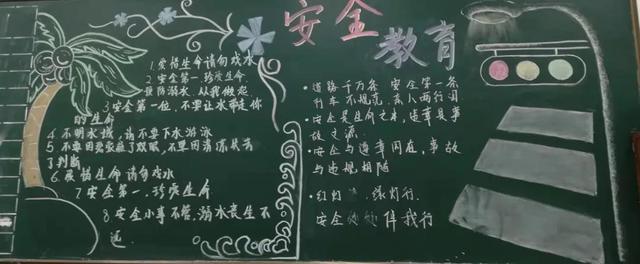 安全
教育
1.爱惜生命请勿戏水
2.安全第一,珍爱生命
预防溺水,从我做起
3安全第一位,不要让水带走你
的生命
4.不明水域,请不要下水游泳
5.不要因爱蒙蔽了双眼,不要因清凉失去
了判断
6.爱惜生命请勿戏水
7.安全第一,珍爱生命
8.安全小事不管,溺水丧生不
远
·道路千万条 安全第一条
行车不规范,亲人两行泪
·安全是生命之本,违章是事
故之源.
·安全与遵章同在,事故
与违规相随
·红灯 绿灯行.
安全 伴我行